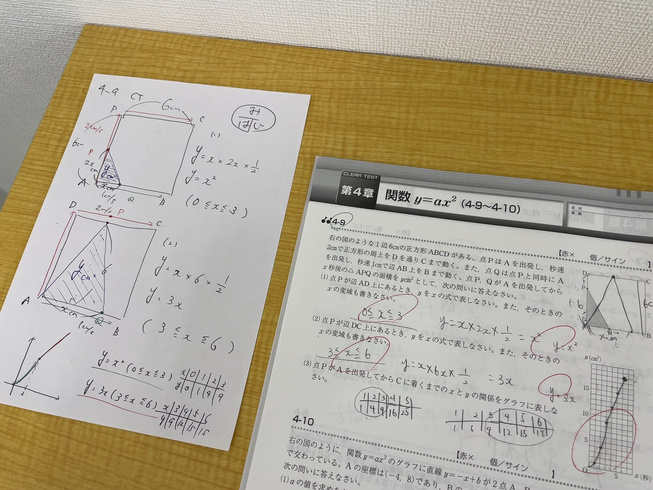 4-9 CT
6cm
P
C
2cm/s
P
6c
2x
cm
A
1cm/s
B
(1)
y=x×2x×1/2
y=x²
(0≦x≦3)
D
2cm/s
P
C
6
A
xcm
Q
B
1cm/s
(2)
y=x×6×1/2
y=3x
(3≦x≦6)
y=x²(0≦x≦3)
x 0 1 2 3
y 0 1 4 9
y=3x(3≦x≦6)
x 3 4 5 6
y 9 12 15 18
CLEAR TEST
第4章 関数 y=ax² (4-9~4-10)
4-9
【赤× 個/サイン 】
右の図のような1辺6cmの正方形ABCDがある。点PはAを出発し、秒速
2cmで正方形の周上をDを通りCまで動く。また、点Qは点Pと同時にA
を出発し、秒速1cmで辺AB上をBまで動く。点P, QがAを出発してから
x秒後の△APQの面積をycm²として、次の問いに答えなさい。
(1)点Pが辺AD上にあるとき、yをxの式で表しなさい。また、そのときの
xの変域も書きなさい。
0≦x≦3
y=x×2x×1/2=x
y=x²
(2)点Pが辺DC上にあるとき、yをxの式で表しなさい。また、そのときの
xの変域も書きなさい。
3≦x≦6
y=x×6x×1/2=3x
y=3x
(3)点PがAを出発してからCに着くまでのxとyの関係をグラフに表しな
さい。
1 2 3 4 5
1 4 9 16 25
1 2 3 4 5 6
1 6 9 12 15 18
y(cm²)
15
10
5
x(秒)
4-10
【赤× 個/サイン 】
右の図のように、関数y=ax²のグラフに直線y=-x+bが2点A,
で交わっている。Aの座標は(-4, 8)であり、Bの
次の問いに答えなさい。
(1)aの値を求め